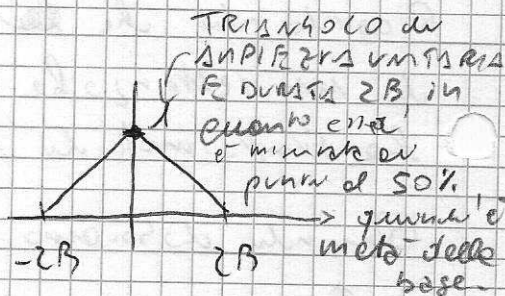 TRIANGOLO di
AMPIEZZA UNITARIA
E DURATA 2B, in
quanto essa
1
è misurata al
punto al 50%,
quindi è
metà della
base.
-2B
2B